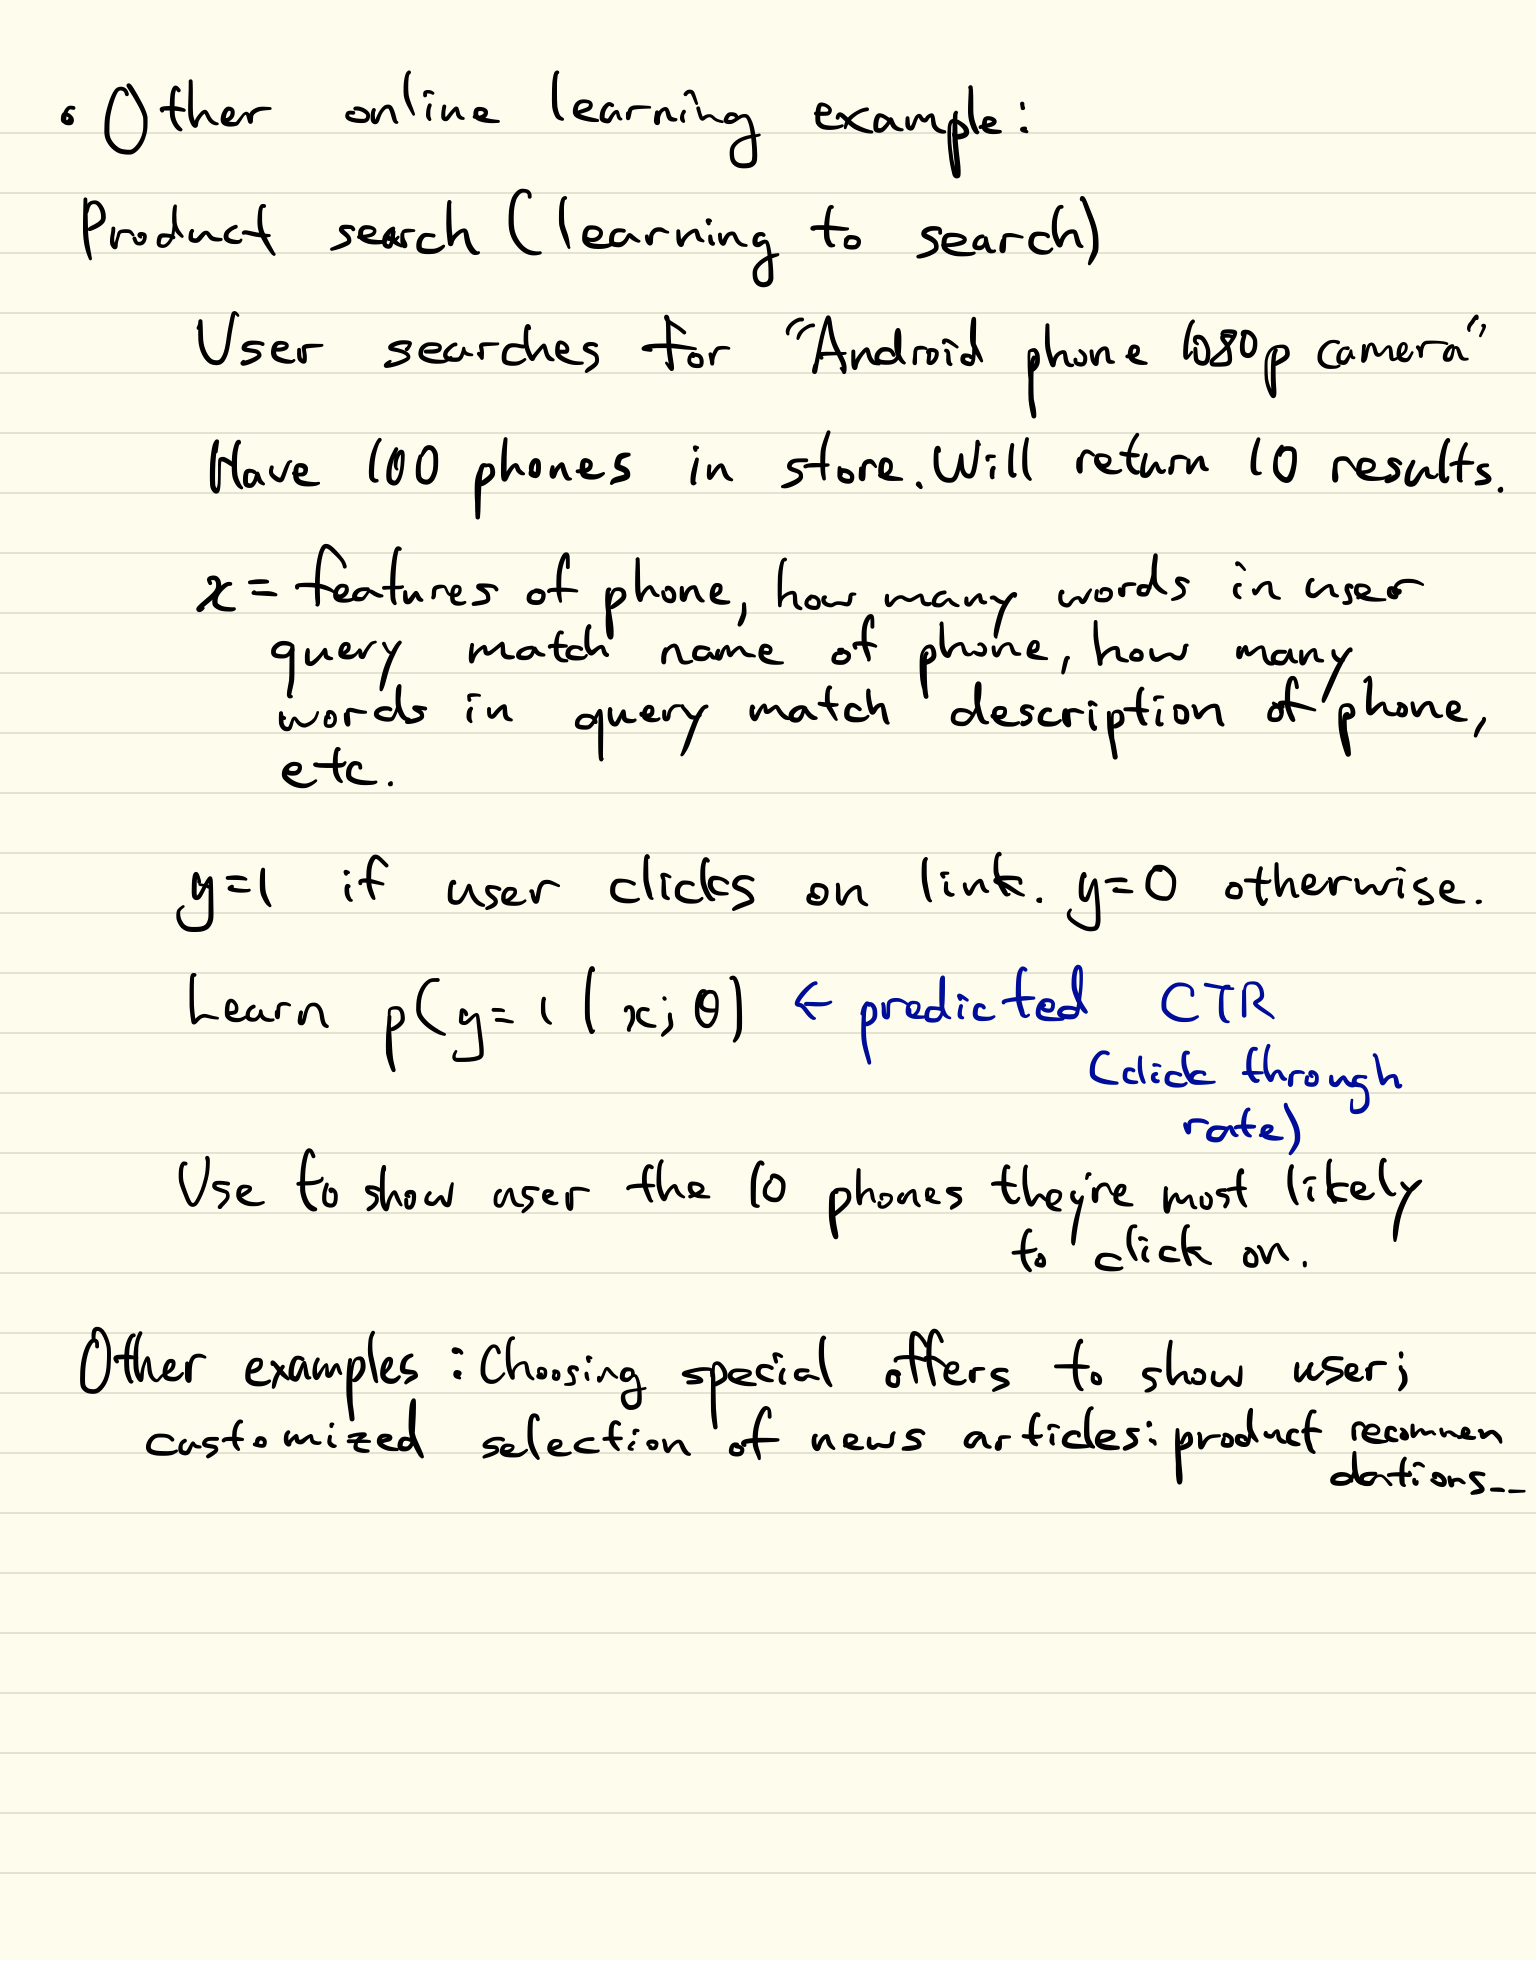 • Other online learning example:
Product search (learning to search)
User searches for "Android phone 1080p camera"
Have 100 phones in store. Will return 10 results.
x = features of phone, how many words in user
query match name of phone, how many
words in query match description of phone,
etc.
y=1 if user clicks on link. y=0 otherwise.
Learn p(y=1 | x; θ) ← predicted CTR
(click through
rate)
Use to show user the 10 phones they're most likely
to click on.
Other examples: Choosing special offers to show user;
customized selection of news articles: product recommen
dations--